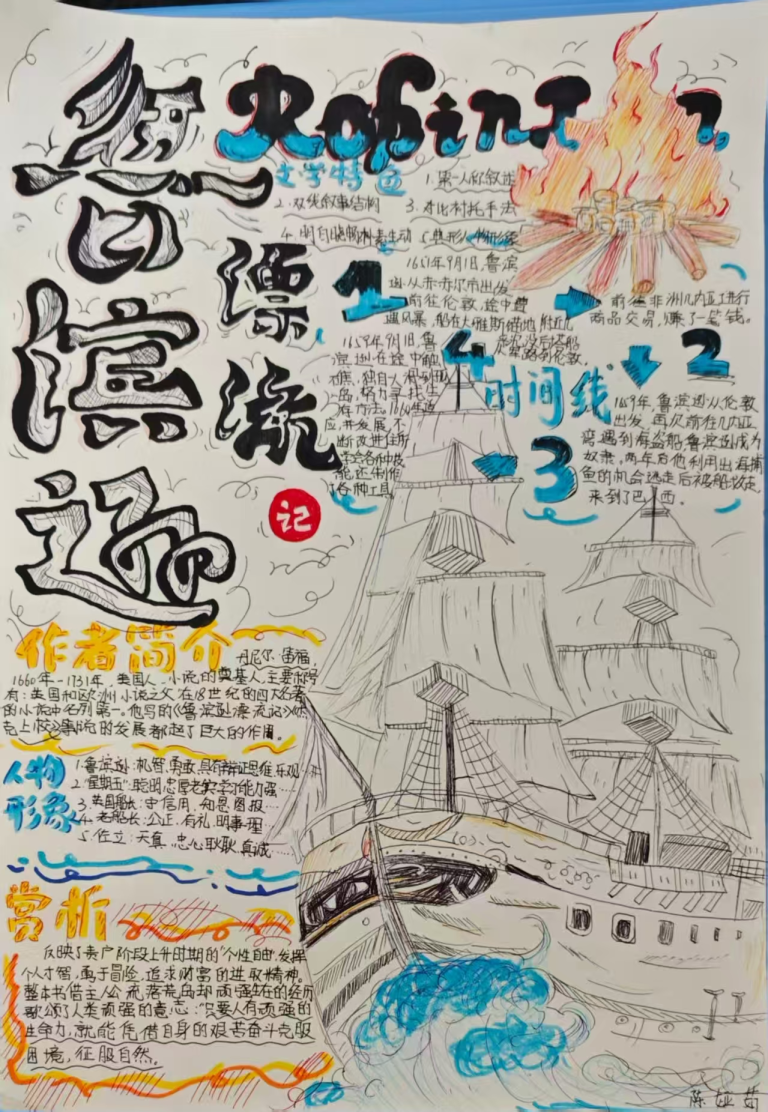 鲁滨逊
漂流
记
Robinson
文学特色
1.第一人称叙述
2.双线叙事结构 3.对比衬托手法
4.明白晓畅朴素生动 5.典形人物形象
1
1651年9月1日,鲁滨
逊从赫尔市出发
前往伦敦,途中遭
遇风暴,船在大雅斯锚地附近
沉没后搭船
到伦敦。
前往非洲几内亚进行
商品交易,赚了一笔钱。
2
时间线
1659年,鲁滨逊从伦敦
出发,再次前往几内亚,
遇到海盗船,鲁滨逊成为
奴隶,两年后他利用出海捕
鱼的机会逃走后被船救起
来到了巴西。
3
4
1659年9月1日,鲁
滨逊在途中
独自人漂到
岛,努力寻找生
存方法,
应,并发展,不
断改进住所
学会各种技
能,还制作
了各种工具
作者简介
丹尼尔·笛福,
1660年--1731年,英国人,小说的奠基人,主要称号
有:英国和欧洲小说之父,在18世纪的四大名著
的小说中名列第一,他写的《鲁滨逊漂流记》
事院的发展都起了巨大的作用。
人物
形象
1.鲁滨逊:机智,勇敢,具有辩证思维,乐观
2."星期五":聪明忠厚老实,学习能力强……
3.英国船长:守信用,知恩图报……
4.老船长:公正,有礼,明事理
5.佐立:天真,忠心耿耿,真诚……
赏析
反映了资产阶段上升时期的"个性自由,发挥
个人才智,勇于冒险,追求财富的进取精神。
整本书借主人公流落荒岛却顽强生存的经历
歌颂了人类顽强的意志:"只要人有顽强的
生命力,就能凭借自身的艰苦奋斗克服
困境,征服自然。